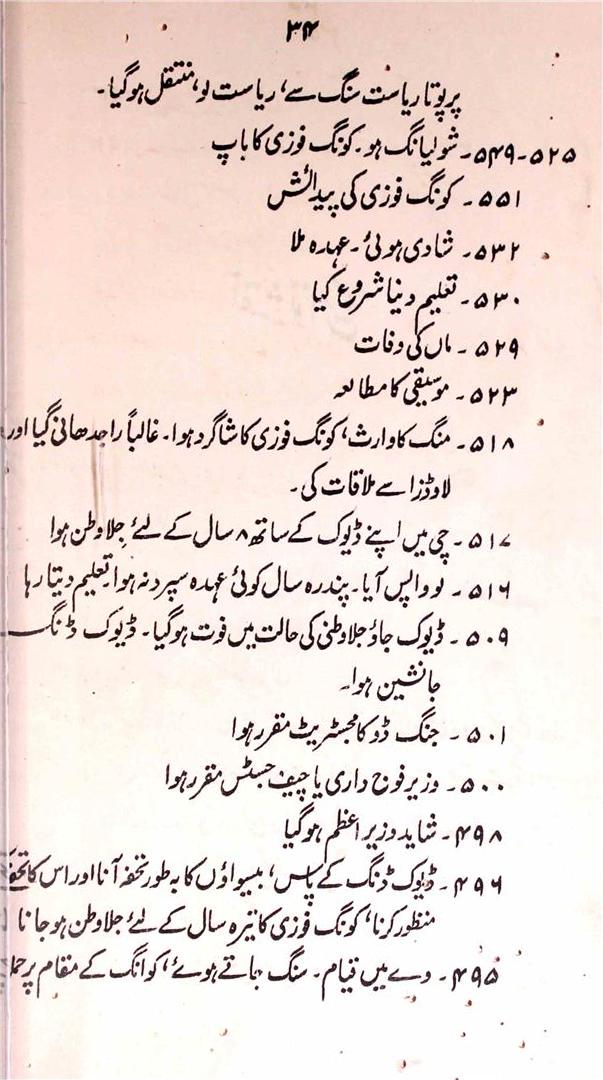 ۳۴
پرپوتا ریاست سنگ سے، ریاست لو، منتقل ہوگیا۔
۵۲۵-۵۴۹۔ شولیانگ ہو۔ کونگ فوزی کا باپ
۵۵۱۔ کونگ فوزی کی پیدائش
۵۳۲۔ شادی ہوئی۔ عہدہ ملا
۵۳۰۔ تعلیم دینا شروع کیا
۵۲۹۔ ماں کی وفات
۵۲۳۔ موسیقی کا مطالعہ
۵۱۸۔ منگ کا وارث، کونگ فوزی کا شاگرد ہوا۔ غالباً راجدھانی گیا اور
لاوڈزا سے ملاقات کی۔
۵۱۷۔ چی میں اپنے ڈیوک کے ساتھ ۸ سال کے لئے جلاوطن ہوا
۵۱۶۔ لو واپس آیا۔ پندرہ سال کوئی عہدہ سپرد نہ ہوا۔ تعلیم دیتا رہا
۵۰۹۔ ڈیوک جاؤ جلاوطنی کی حالت میں فوت ہوگیا۔ ڈیوک ڈنگ
جانشین ہوا۔
۵۰۱۔ جنگ ڈو کا مجسٹریٹ مقرر ہوا
۵۰۰۔ وزیر فوج داری یا چیف جسٹس مقرر ہوا
۴۹۸۔ شاید وزیر اعظم ہوگیا
۴۹۶۔ ڈیوک ڈنگ کے پاس، بیسواؤں کا بہ طور تحفہ آنا اور اس کا تحفہ
منظور کرنا، کونگ فوزی کا تیرہ سال کے لئے جلاوطن ہو جانا
۴۹۵۔ وے میں قیام۔ سنگ جاتے ہوئے، کوانگ کے مقام پر